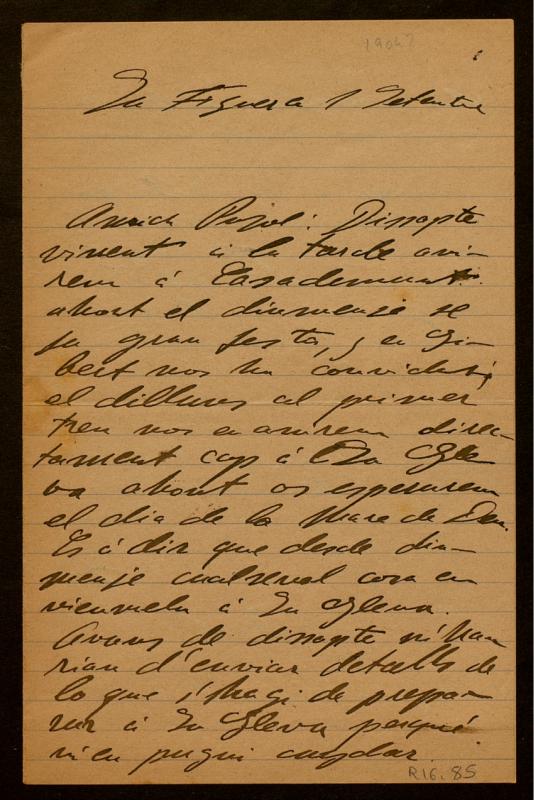 1904?
La Figuera 1 Setembre
Amich Pujol: Dissapte
vinent á la tarde ani-
rem á Casademunt
ahont el diumenge se
fa gran festa, y en Gi-
bert nos ha convidat,
el dilluns al primer
tren nos en anirem direc-
tament cap á La Gle
va ahont os esperarem
el dia de la Mare de Deu.
Es á dir que desde diu-
menje cualsevol cosa en
vieumela á La Gleva.
Avans de dissapte m'hau-
rian d'enviar detalls de
lo que s'hagi de prepa-
rar á La Gleva perqué
m'en pugui cuydar.
R16.85